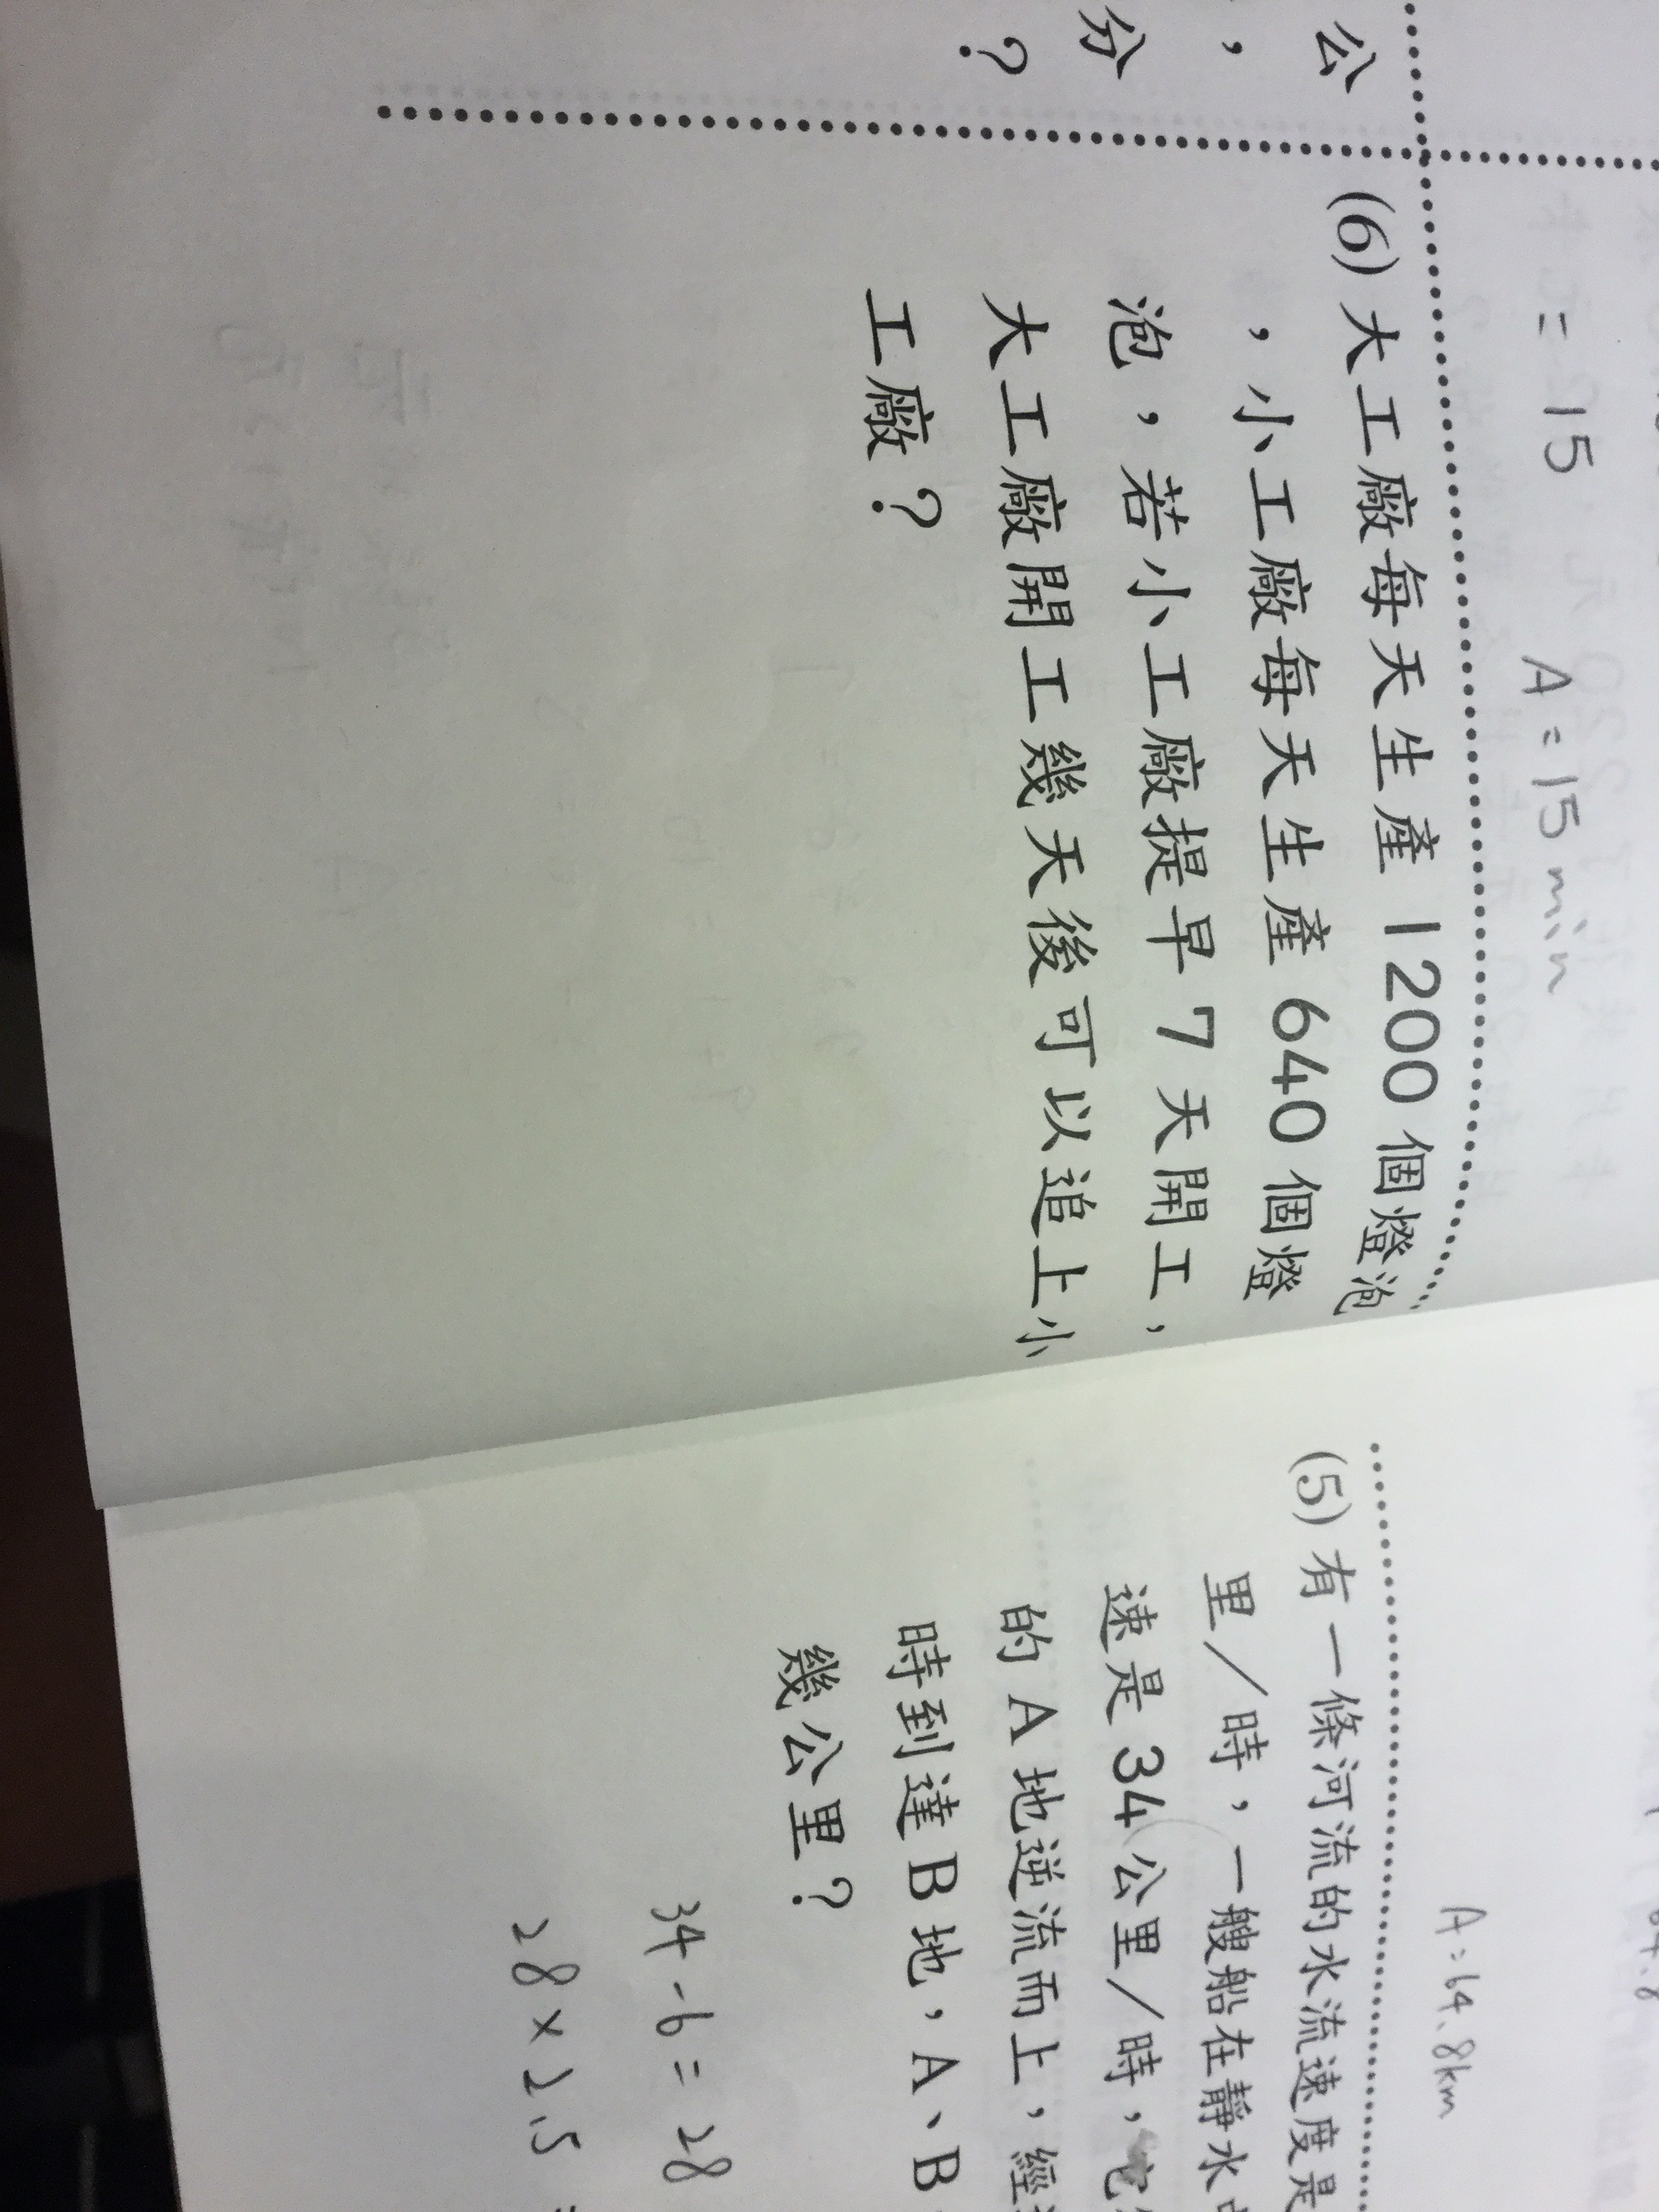 公
，
分
？
= 15  A = 15 min
(6) 大工廠每天生產 1200 個燈泡
，小工廠每天生產 640 個燈
泡，若小工廠提早 7 天開工，
大工廠開工幾天後可以追上小
工廠？
A = 64.8km
(5) 有一條河流的水流速度是
里／時，一艘船在靜水中
速是 34 公里／時，它
的 A 地逆流而上，經
時到達 B 地，A、B
幾公里？
34 - 6 = 28
28 × 2.5 =